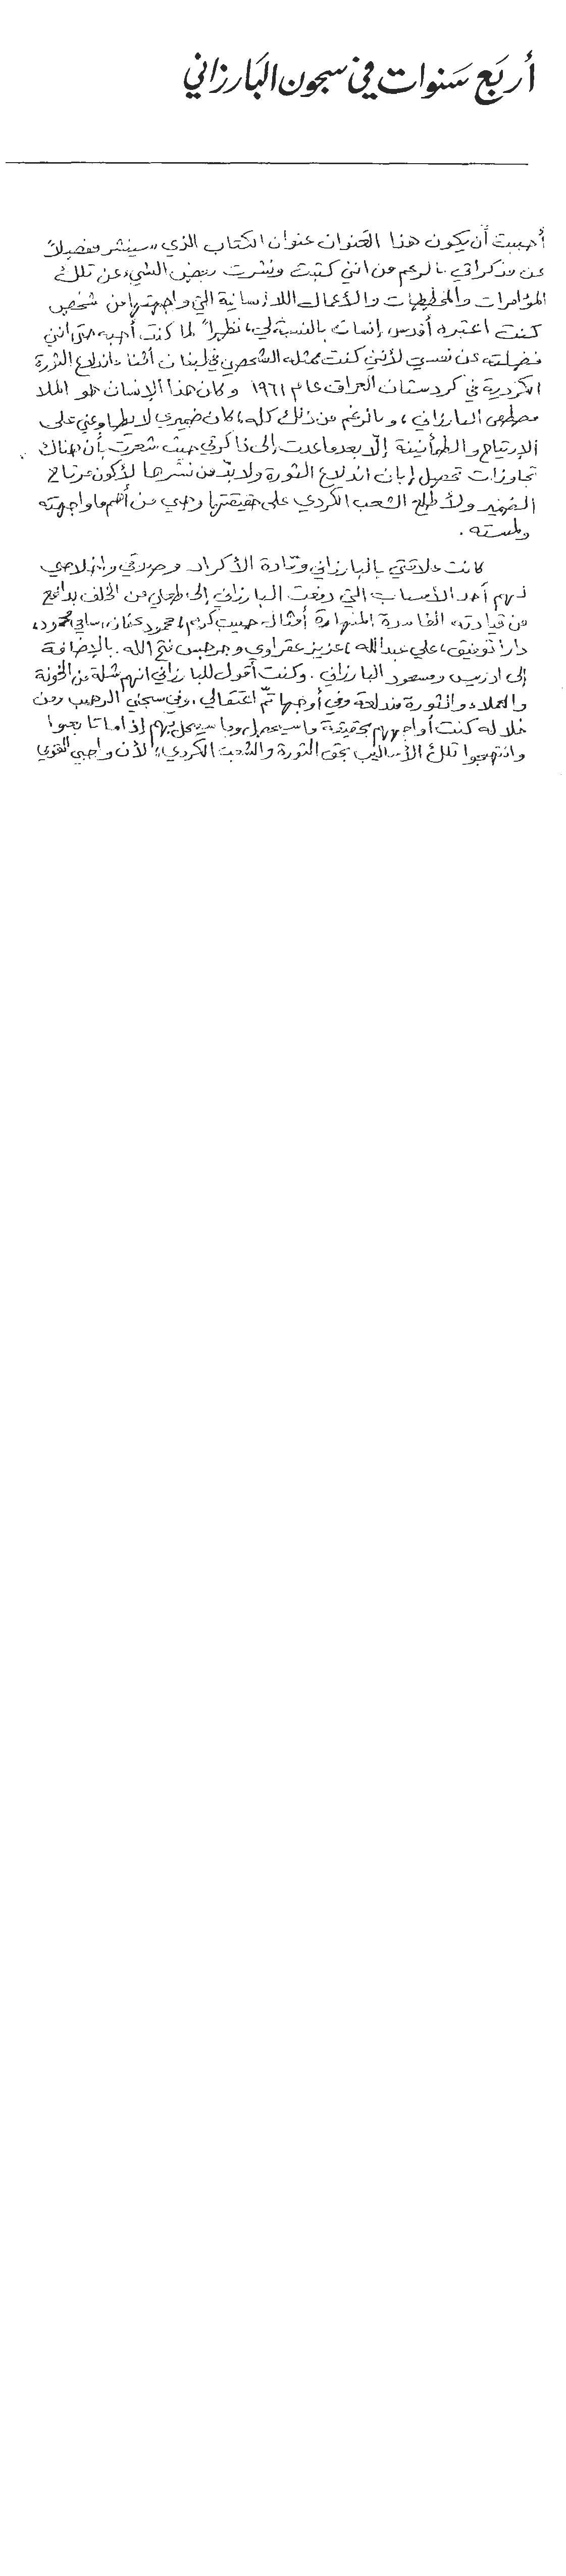 أربع سنوات في سجون البارزاني
أحببت أن يكون هذا العنوان عنوان الكتاب الذي سينشر مفصلاً
عن مذكراتي بالرغم من انني كتبت ونشرت بعض الشيء عن تلك
المؤامرات والمخططات والأعمال اللاإنسانية التي واجهتها من شخص
كنت اعتبره أقدس إنسان بالنسبة لي، نظراً لما كنت أحبه حتى انني
فضلته عن نفسي لأنني كنت ممثله الشخصي في لبنان أثناء اندلاع الثورة
الكردية في كردستان العراق عام ١٩٦١ وكان هذا الإنسان هو الملا
مصطفى البارزاني، وبالرغم من ذلك كله، كان ضميري لا يطاوعني على
الإرتياح والطمأنينة إلّا بعد ما عدت إلى ذاكرتي حيث شعرت بأن هناك
تجاوزات تحصل إبان اندلاع الثورة ولا بدّ من نشرها لأكون مرتاح
الضمير ولأطلع الشعب الكردي على حقيقتها وهي من أهم ما واجهته
ولمسته .
كانت علاقتي بالبارزاني وقادة الأكراد وصدقي وإخلاصي
لهم أحد الأسباب التي دفعت البارزاني إلى طعني من الخلف بدافع
من قيادته الفاسدة المنهارة أمثال حبيب كريم، محمود عثمان، سامي محمود،
دارا توفيق، علي عبدالله، عزيز عقراوي وجرجيس فتح الله . بالإضافة
إلى ادريس ومسعود البارزاني . وكنت أقول للبارزاني انهم شلة من الخونة
والعملاء والثورة مندلعة وفي أوجها تمّ اعتقالي، وفي سجني الرهيب ومن
خلاله كنت أواجههم بحقيقة ما سيحصل وما سيحل بهم إذا ما تابعوا
وانتهجوا تلك الأساليب بحق الثورة والشعب الكردي، لأن واجبي القومي